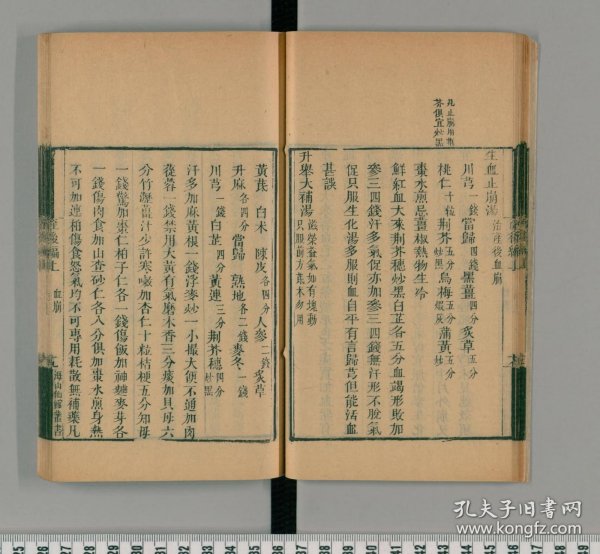 凡止崩用荊
芥俱宜炒黑
生血止崩湯 治產後血崩
川芎一錢 當歸四錢 黑薑四分 炙草五分
桃仁十粒 荊芥五分炒黑 烏梅五分煅灰 蒲黃五分炒
棗水煎忌薑椒熱物生冷
鮮紅血大來荊芥穗炒黑白芷各五分血竭形敗加
參三四錢汗多氣促亦加參三四錢無汗形不脫氣
促只服生化湯多服則血自平有言歸芎但能活血
甚誤
升舉大補湯 滋榮益氣如有塊動只服前方蓍朮勿用
黃蓍 白朮 陳皮各四分 人參二錢 炙草
升麻各四分 當歸 熟地各二錢 麥冬一錢
川芎一錢 白芷四分 黃連三分 荊芥穗四分炒黑
汗多加麻黃根一錢浮麥炒一小撮大便不通加肉
蓯蓉一錢禁用大黃有氣磨木香三分痰加貝母六
分竹瀝薑汁少許寒嗽加杏仁十粒桔梗五分知母
一錢驚加棗仁柏子仁各一錢傷飯加神麯麥芽各
一錢傷肉食加山查砂仁各八分俱加棗水煎身熱
不可加連柏傷食怒氣均不可專用耗散無補藥凡
產後編上 血崩
海山仙館叢書
孔夫子旧书网
www.kongfz.com
25 26 27 28 29 30 31 32 33 34 35 36 37 38 39 40 41 42 43 44 45 46 47 48 49